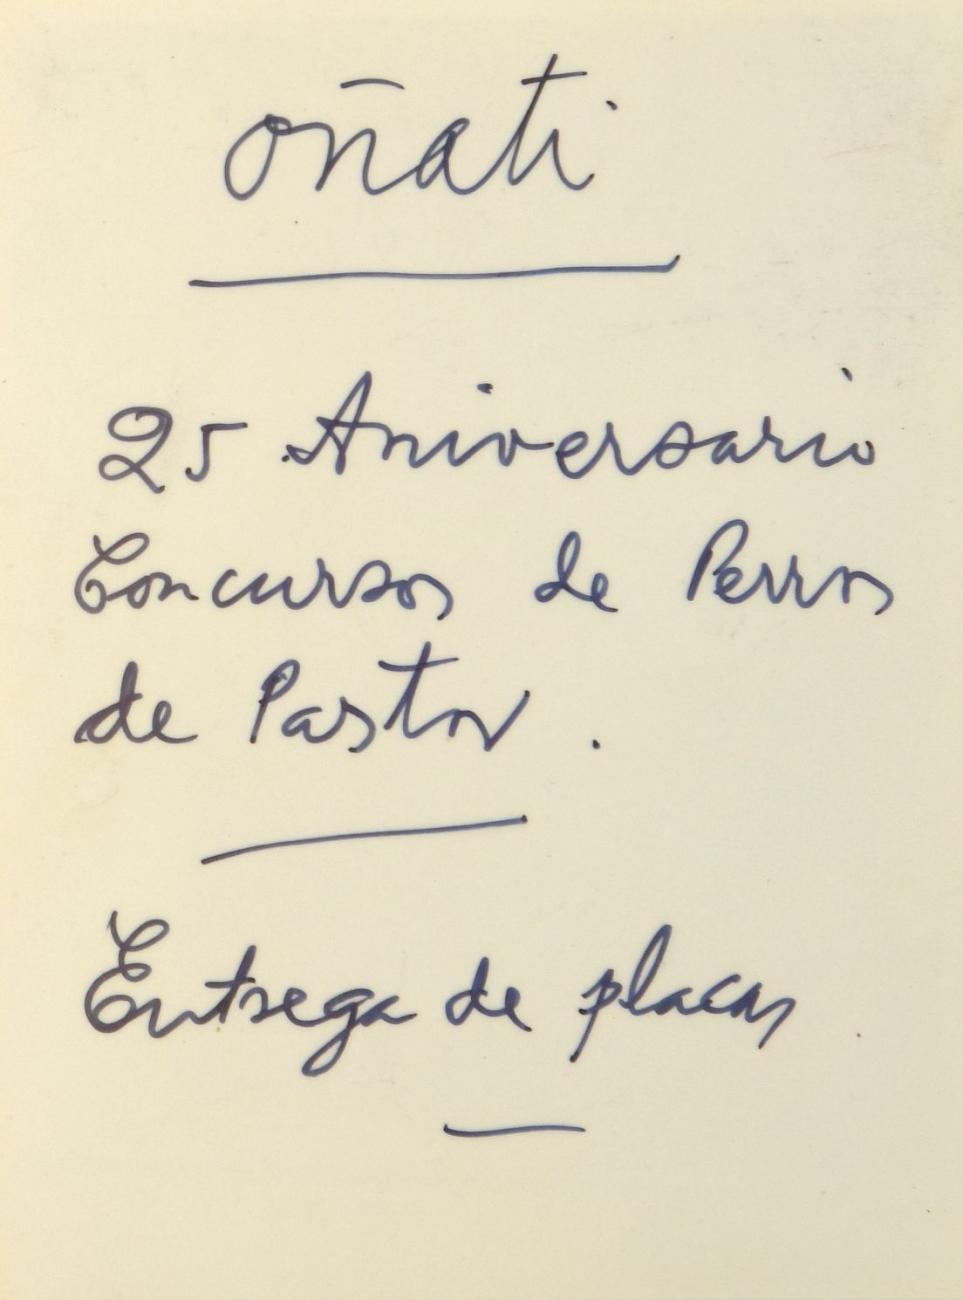 Oñati
25 Aniversario
Concursos de Perros
de Pastor.
Entrega de placas.